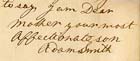 to say I am Dear
Mother your most
affectionate son
Adam Smith